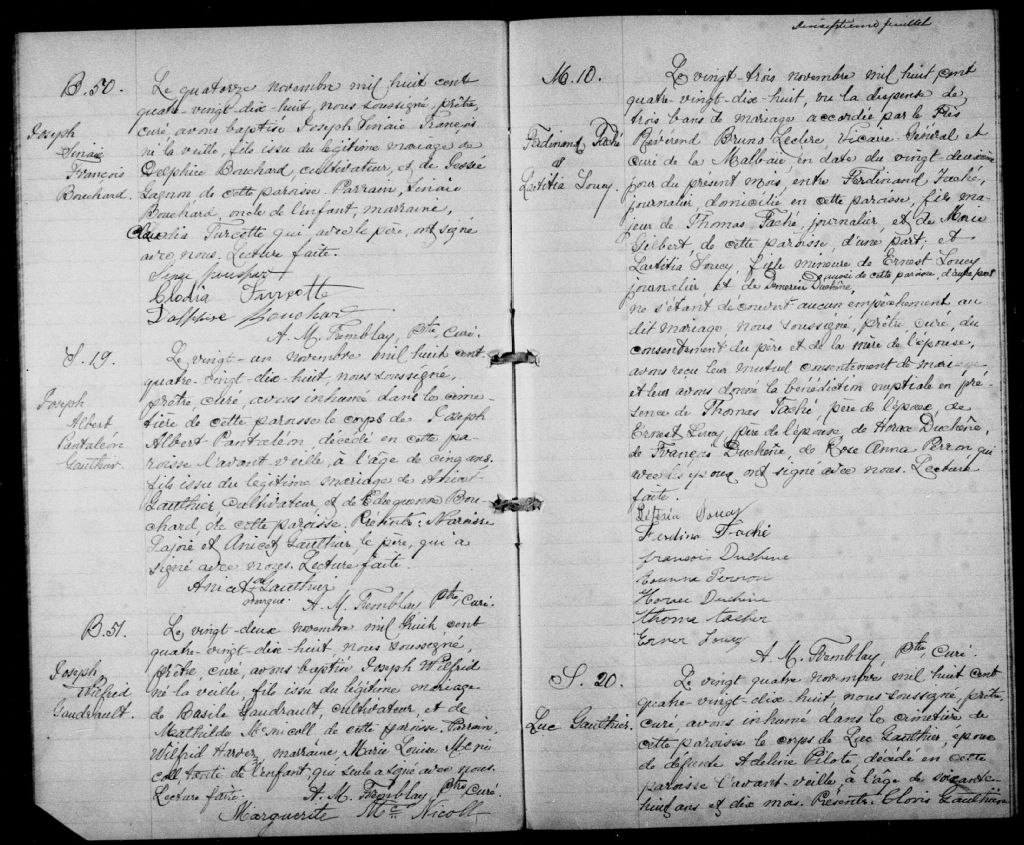 B. 50.
Joseph
Sinaie
François
Bouchard.
Le quatorze novembre mil huit cent
quatre-vingt-dix-huit, nous soussigné, prêtre,
curé, avons baptisé Joseph Sinaie François
né la veille, fils issu du légitime mariage de
Delphice Bouchard, cultivateur, et de
Gagnon de cette paroisse. Parrain, Sinaie
Bouchard, oncle de l'enfant, marraine,
Claudia Turcotte qui avec le père, ont signé
avec nous. Lecture faite.
Clodia Turcotte
Bouchard
A. M. Tremblay, Ptre Curé.
S. 19.
Joseph
Albert
Pantaléon
Gauthier.
Le vingt-un novembre mil huit cent
quatre-vingt-dix-huit, nous soussigné,
prêtre, curé, avons inhumé dans le cime-
tière de cette paroisse le corps de Joseph
Albert Pantaléon décédé en cette pa-
roisse l'avant-veille, à l'âge de cinq ans,
fils issu du légitime mariage de
Gauthier cultivateur, et de Bou-
chard, de cette paroisse. Présents: Narcisse
Lajoie et Anicet Gauthier, le père, qui a
signé avec nous. Lecture faite.
Anicet Gauthier
marque.
A. M. Tremblay, Ptre, Curé.
B. 51.
Joseph
Wilfrid
Gaudrault.
Le vingt-deux novembre mil huit cent
quatre-vingt-dix-huit, nous soussigné,
prêtre, curé, avons baptisé Joseph Wilfrid
né la veille, fils issu du légitime mariage
de Basile Gaudrault, cultivateur, et de
Mathilde McNicoll de cette paroisse. Parrain,
Wilfrid Harvey, marraine, Marie Louise McNi
coll, tante de l'enfant qui seule a signé avec nous.
Lecture faite. A. M. Tremblay, Ptre Curé.
Marguerite Mc Nicoll
dixseptième feuillet
M. 10.
Ferdinand Taché
et
Laetitia Soucy.
Le vingt-trois novembre mil huit cent
quatre-vingt-dix-huit, vu la dispense de
trois bans de mariage accordée par le Très
Révérend Bruno Leclerc, Vicaire Général et
Curé de la Malbaie, en date du vingt-deuxième
jour du présent mois, entre Ferdinand Taché,
journalier, domicilié en cette paroisse, fils ma-
jeur de Thomas Taché, journalier, et de Marie
Gilbert de cette paroisse, d'une part; et
Laetitia Soucy, fille mineure de Ernest Soucy
journalier et de Demerise Duchêne, aussi de cette paroisse, d'autre part
ne s'étant découvert aucun empêchement au
dit mariage, nous soussigné, prêtre, curé, du
consentement du père et de la mère de l'épouse,
avons reçu leur mutuel consentement de mariage
et leur avons donné la bénédiction nuptiale en pré-
sence de Thomas Taché, père de l'époux, de
Ernest Soucy père de l'épouse, de Horace Duchêne,
de François Duchêne, de Rose Anna Perron qui
avec les époux ont signé avec nous. Lecture
faite.
Soucy
Ferdina Taché
francois Duchine
Perron
Horace Duchine
Thoma tacher
Soucy
A. M. Tremblay, Ptre Curé.
S. 20.
Luc Gauthier.
Le vingt quatre novembre mil huit cent
quatre-vingt-dix-huit nous soussigné, prêtre,
curé, avons inhumé dans le cimetière de
cette paroisse le corps de Luc Gauthier, époux
de défunte Adeline Pilote, décédé en cette
paroisse l'avant-veille, à l'âge de soixante-
huit ans et dix mois. Présents: Clovis Gauthier